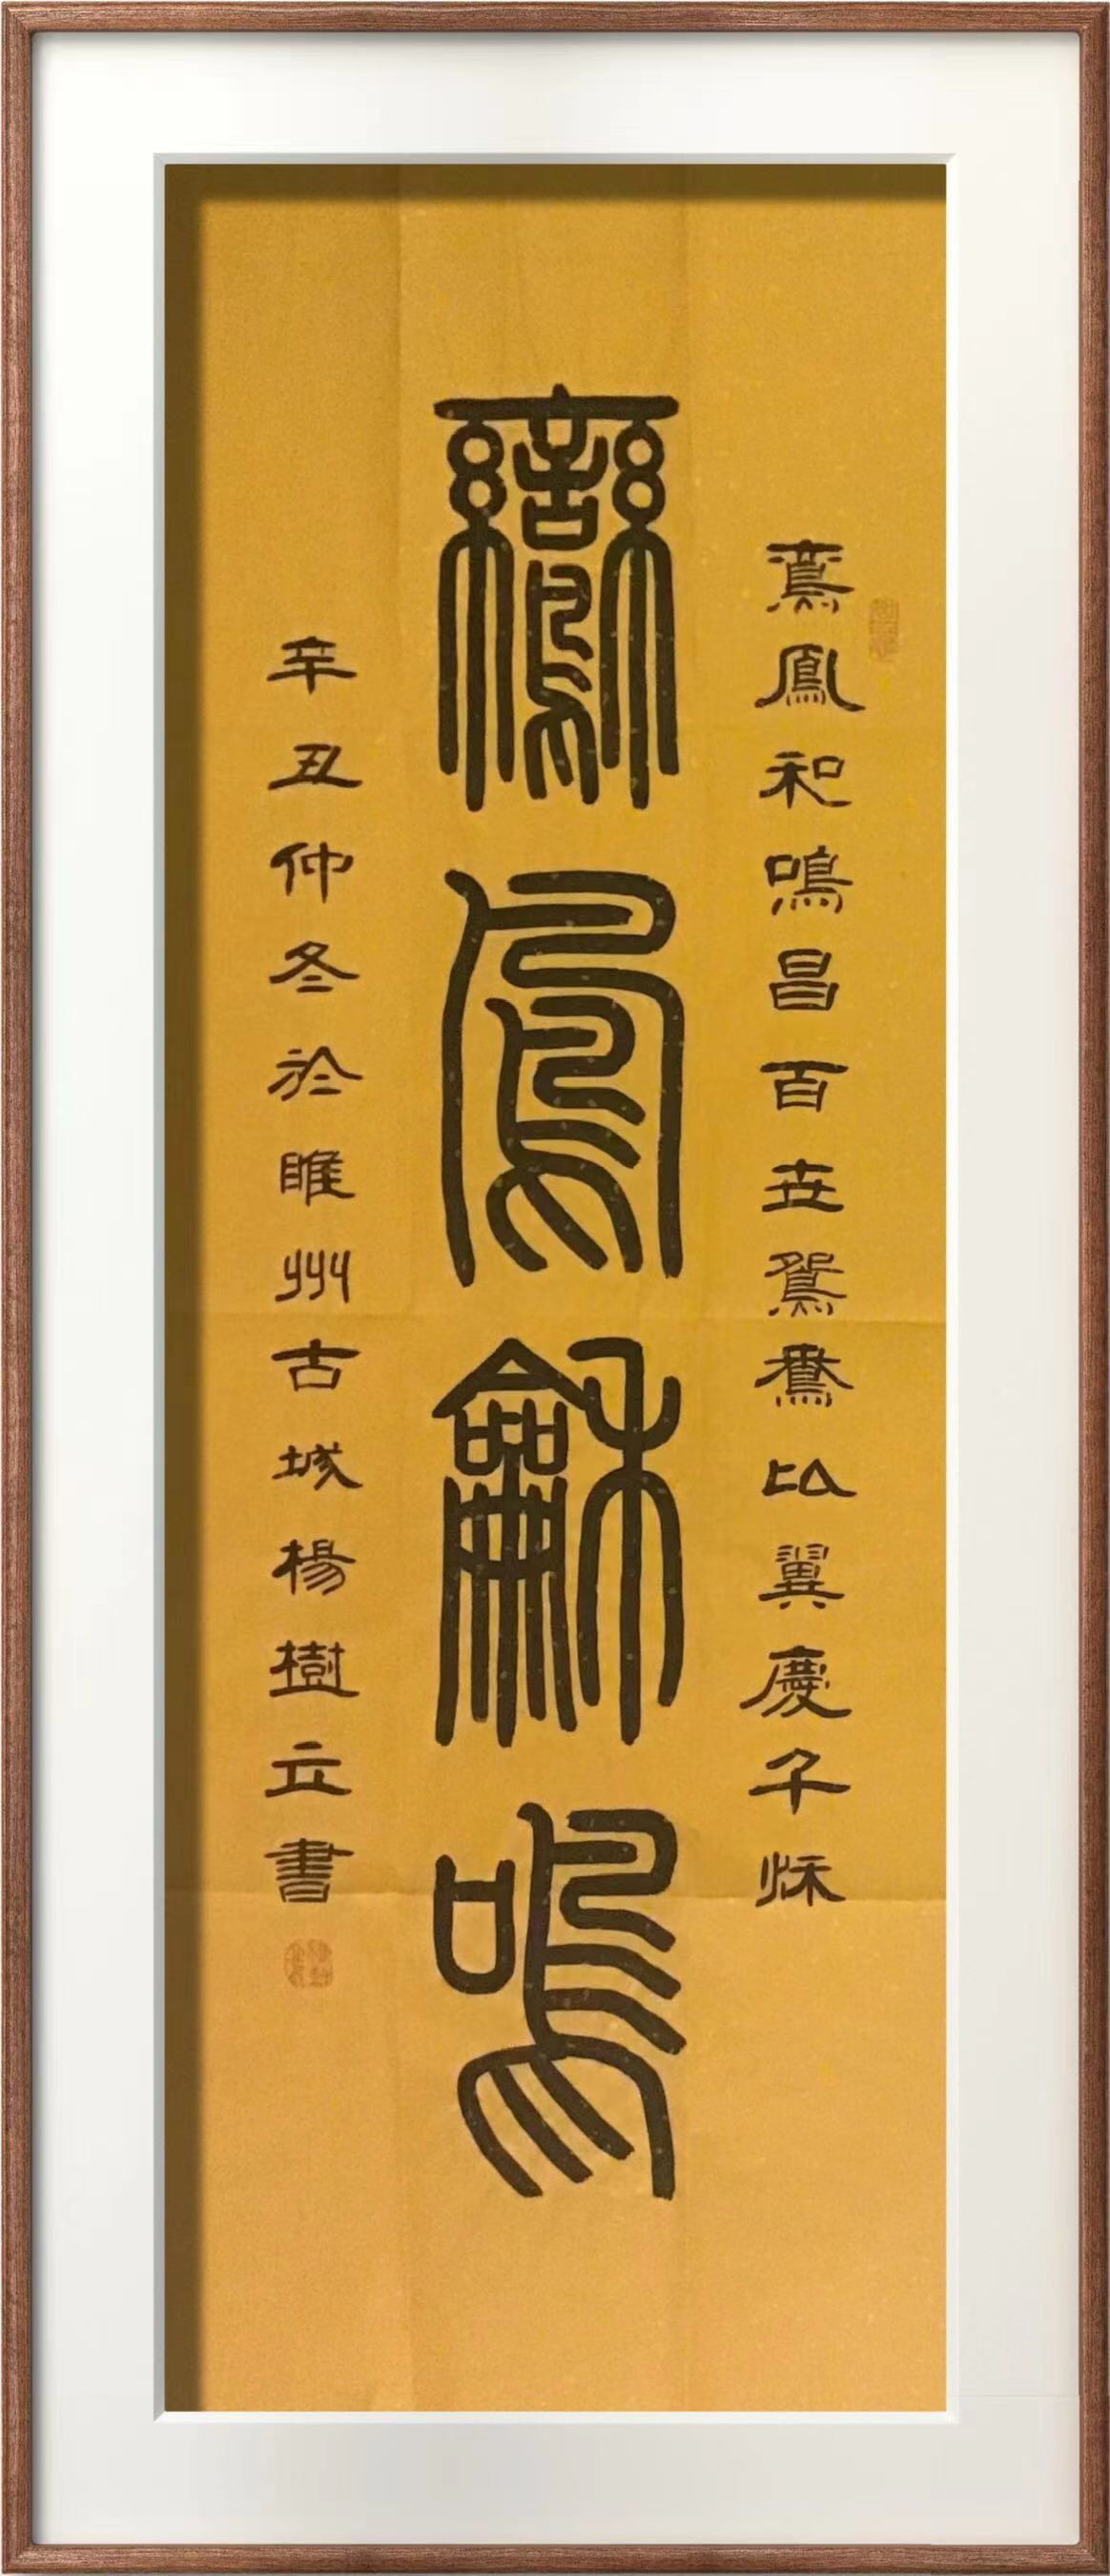 鸞鳳和鳴昌百世鴛鴦比翼慶千秋
鸞鳳龢鳴
辛丑仲冬於睢州古城楊樹立書